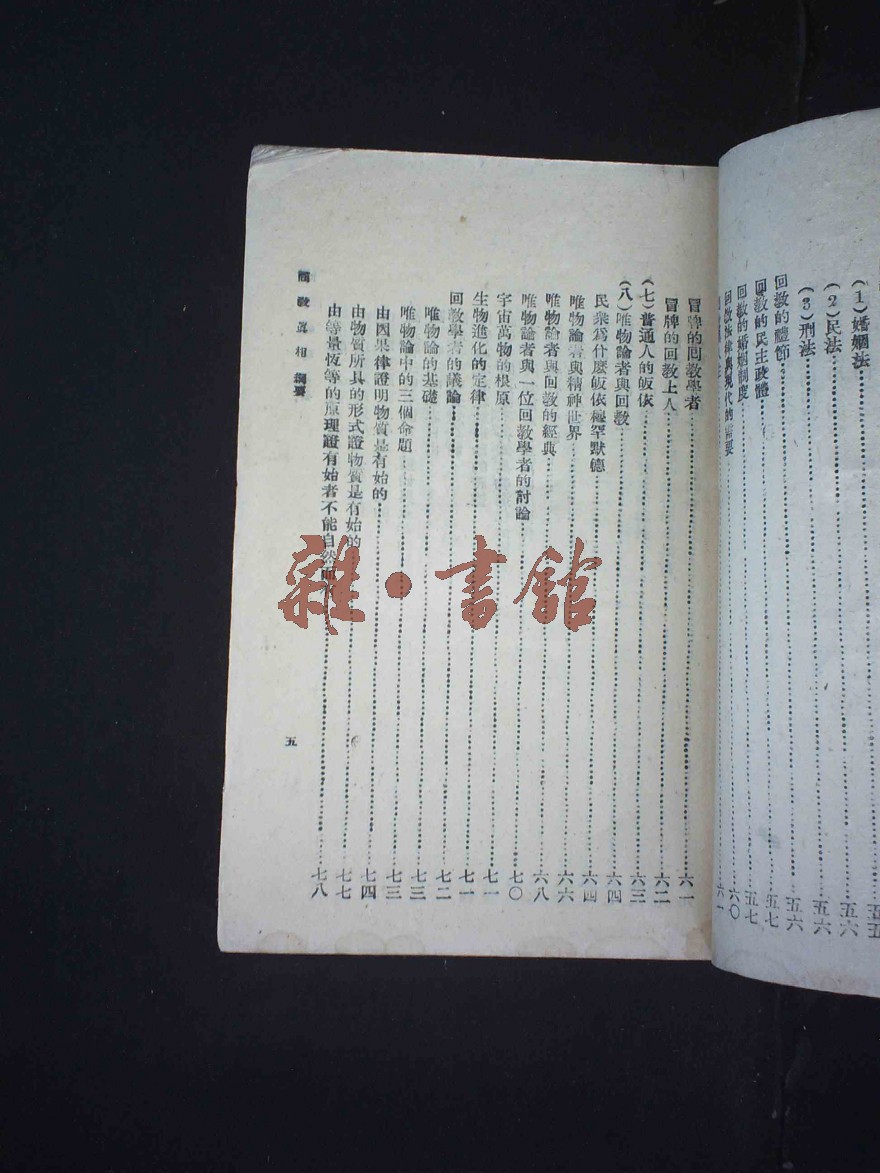 (1)婚姻法……五五
(2)民法……五六
(3)刑法……五六
回教的禮節……五六
回教的民主政體……五七
回教的婚姻制度……五七
回教法律與現代的需要……六〇
六一
冒牌的回教學者……六一
冒牌的回教上人……六二
(七)普通人的皈依……六三
(八)唯物論者與回教……六四
民衆爲什麼皈依穆罕默德……六四
唯物論者與精神世界……六六
唯物論者與回教的經典……六八
唯物論者與一位回教學者的討論……七〇
宇宙萬物的根原……七一
生物進化的定律……七一
回教學者的議論……七二
唯物論的基礎……七三
唯物論中的三個命題……七三
由因果律證明物質是有始的……七四
由物質所具的形式證物質是有始的……七七
由等量恆等的原理證有始者不能自然而……七八
回教真相 綱要
五
雜·書館